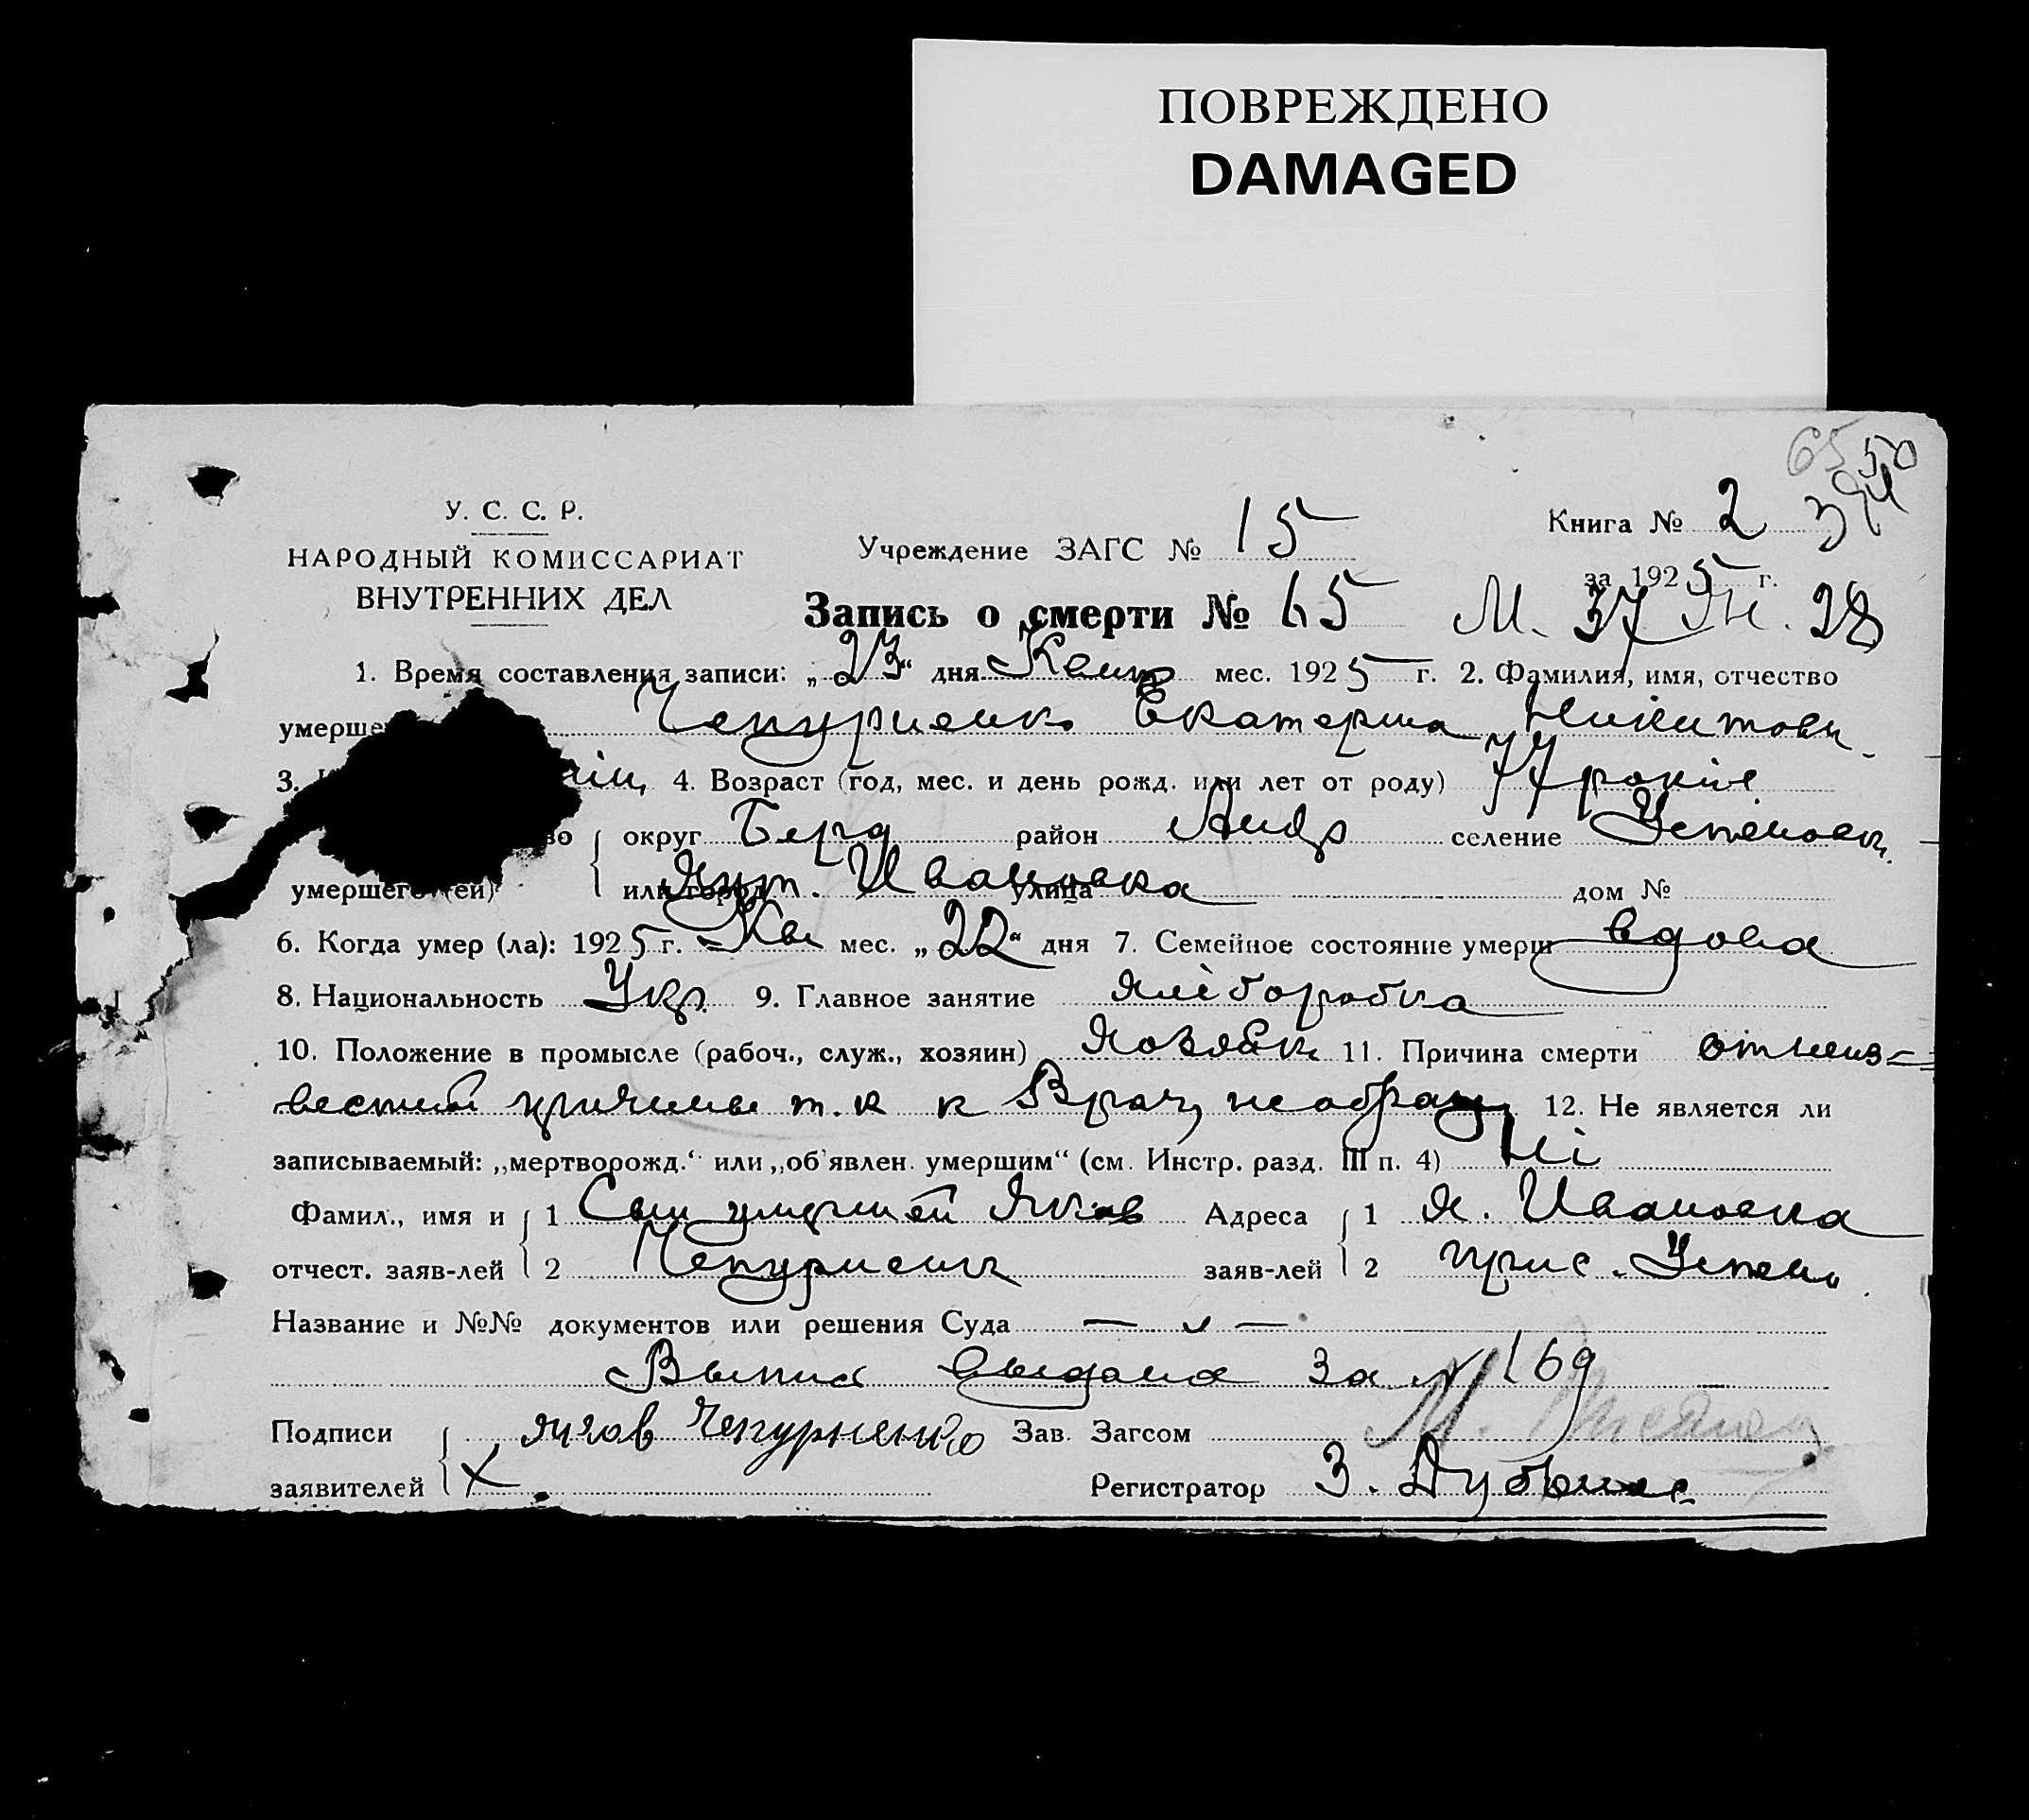 ПОВРЕЖДЕНО
DAMAGED
65 50
У. С. С. Р.
НАРОДНЫЙ КОМИССАРИАТ
ВНУТРЕННИХ ДЕЛ
Учреждение ЗАГС № 15
Книга № 2
за 1925 г.
Запись о смерти № 65 М. 37 Ж. 28
1. Время составления записи: „23“ дня мес. 1925 г. 2. Фамилия, имя, отчество
умерше Чепурненко Екатерина Никитовн
3. 4. Возраст (год, мес. и день рожд. или лет от роду) 77 років
во округ Берд район Андр селение Успеновк
умершего (ей) или город Хут. Ивановка улица дом №
6. Когда умер (ла): 1925 г. Кві мес. „22“ дня 7. Семейное состояние умерш вдова
8. Национальность Укр. 9. Главное занятие хліборобка
10. Положение в промысле (рабоч., служ., хозяин) хозяйк 11. Причина смерти от неиз=
вестной причины т. к к врачу не обращ 12. Не является ли
записываемый: „мертворожд.“ или „об'явлен. умершим“ (см. Инстр. разд. III п. 4) Ні
Фамил., имя и 1 Сын умершей Яков Адреса 1 х. Ивановка
отчест. заяв-лей 2 Чепурненк заяв-лей 2 Успен
Название и №№ документов или решения Суда — „ —
Выпис выдана за № 169
Подписи Яков Чепурненко Зав. Загсом М.
заявителей х Регистратор З.